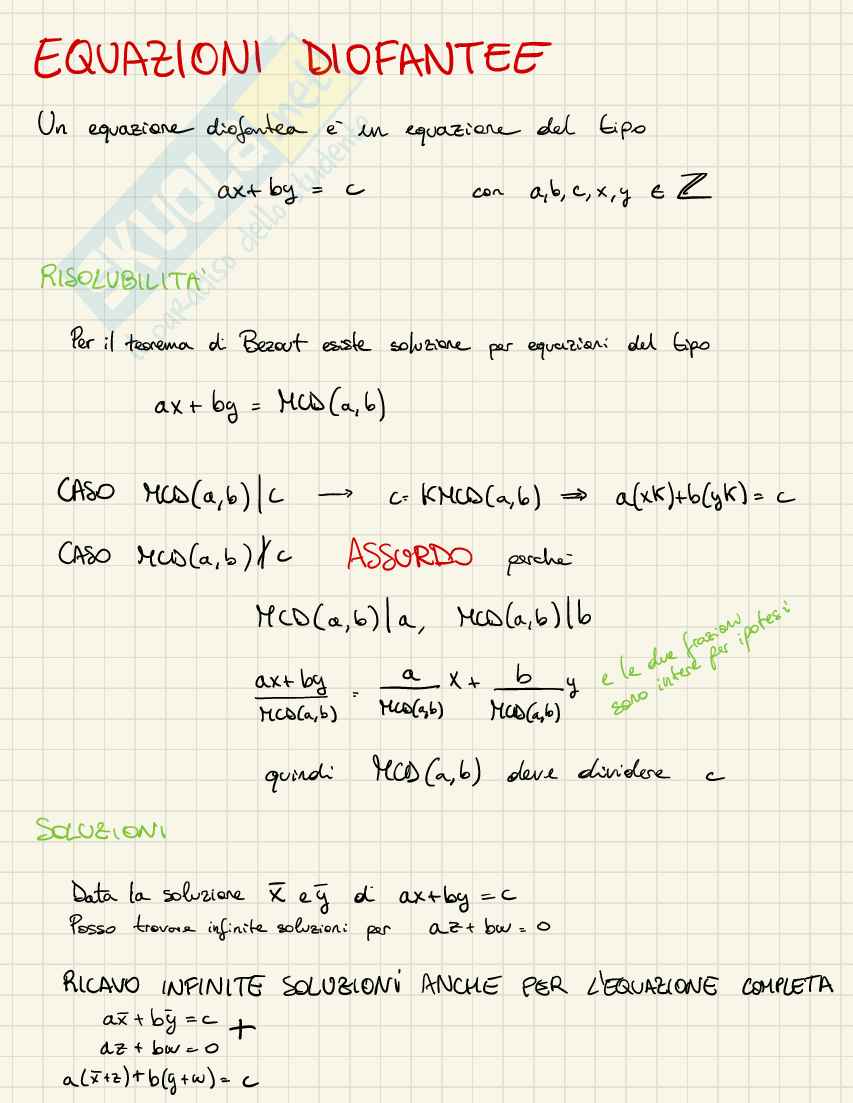 EQUAZIONI DIOFANTEE
Un equazione diofantea è un equazione del tipo
ax + by = c con a,b,c,x,y ∈ ℤ
RISOLUBILITA'
Per il teorema di Bezout esiste soluzione per equazioni del tipo
ax + by = MCD(a,b)
CASO MCD(a,b) | c → c = KMCD(a,b) ⇒ a(xK)+b(yK) = c
CASO MCD(a,b) ∤ c ASSURDO perchè
MCD(a,b) | a, MCD(a,b) | b
(ax + by)/MCD(a,b) = a/MCD(a,b) x + b/MCD(a,b) y
e le due frazioni
sono intere per ipotesi
quindi MCD(a,b) deve dividere c
SOLUZIONI
Data la soluzione x̄ e ȳ di ax+by = c
Posso trovare infinite soluzioni per az + bw = 0
RICAVO INFINITE SOLUZIONI ANCHE PER L'EQUAZIONE COMPLETA
ax̄ + bȳ = c +
az + bw = 0
a(x̄+z)+b(y+w) = c
SKUOLA.net
il paradiso dello studente